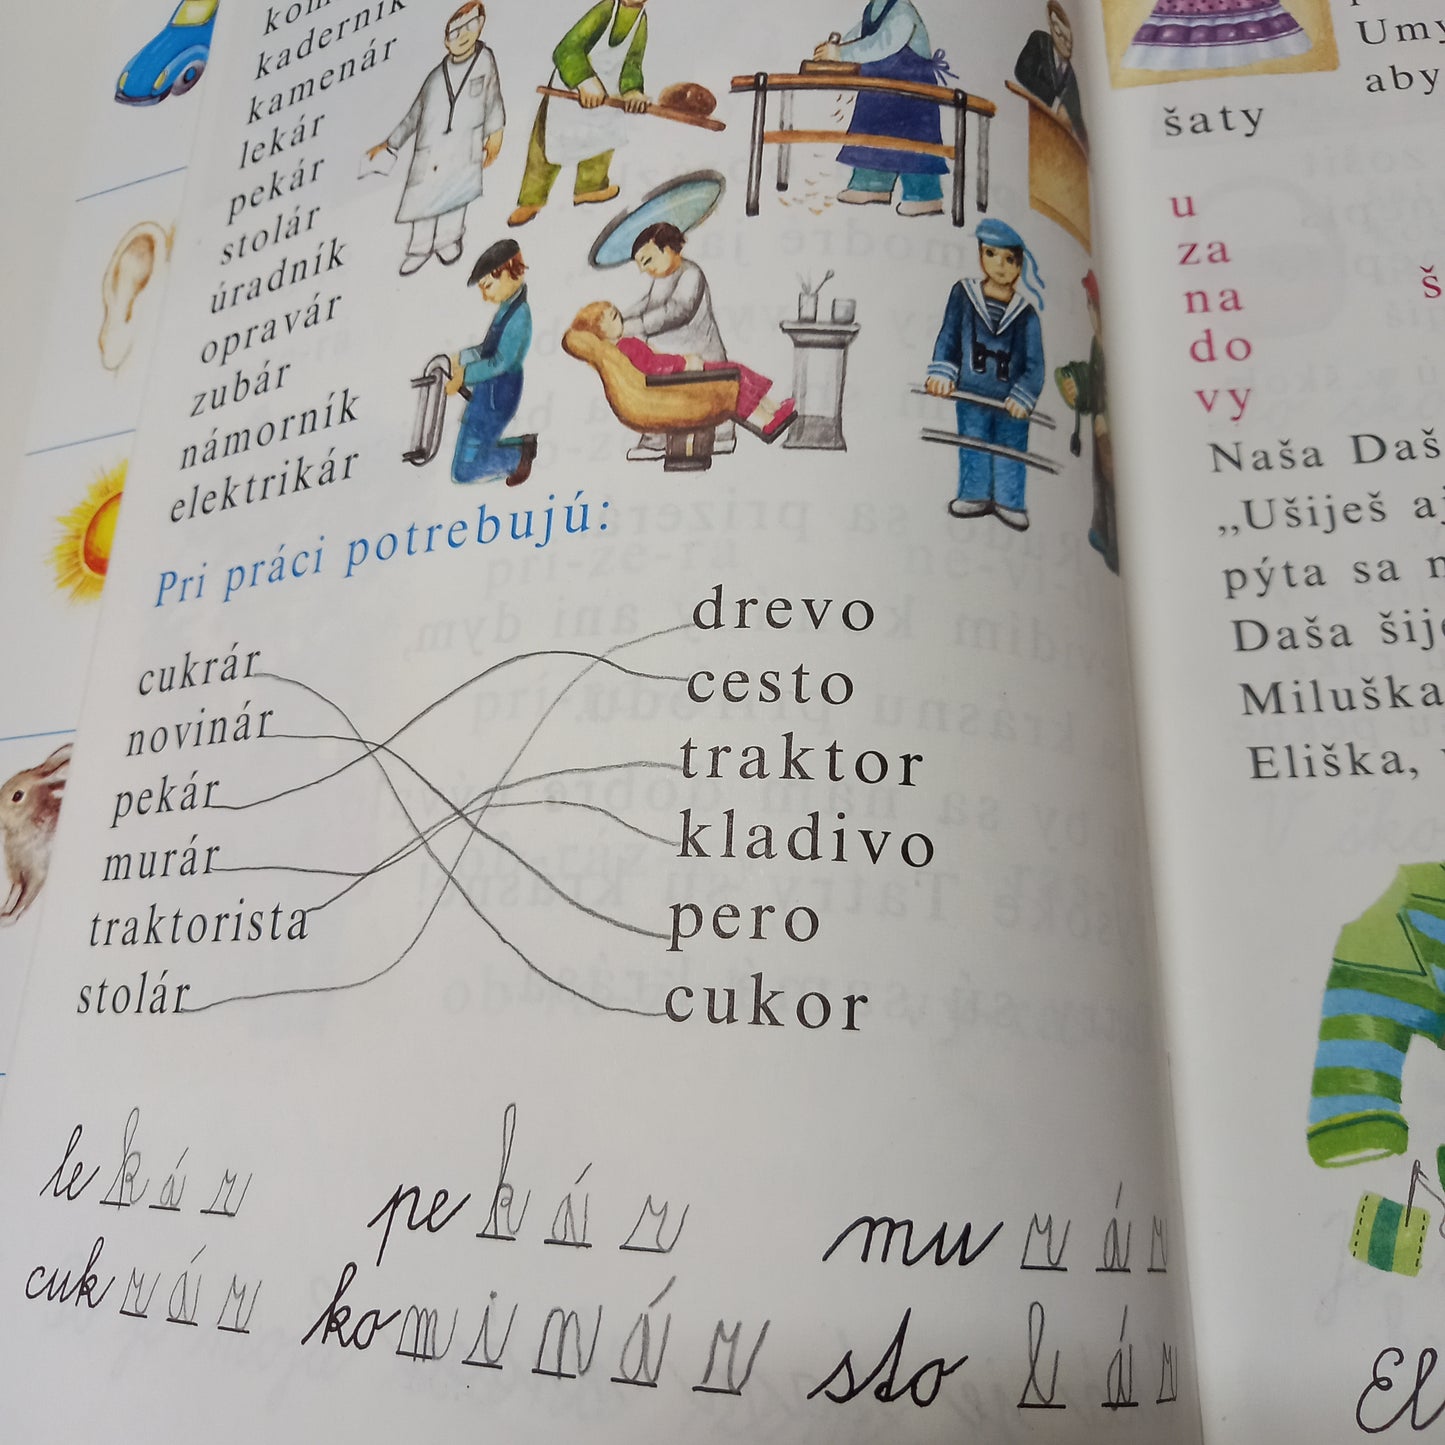 kaderník
kamenár
lekár
pekár
stolár
úradník
opravár
zubár
námorník
elektrikár
Pri práci potrebujú:
cukrár
novinár
pekár
murár
traktorista
stolár
drevo
cesto
traktor
kladivo
pero
cukor
lekár pekár murár
cukrár kominár stolár
šaty
aby
u
za
na
do
vy
Naša
„Ušiješ
pýta sa
Daša
Miluška
Eliška,